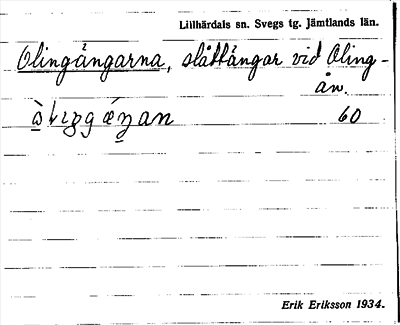 Lillhärdals sn. Svegs tg. Jämtlands län.
Olingängarna, slåttängar vid Oling-
ån.
60
Erik Eriksson 1934.